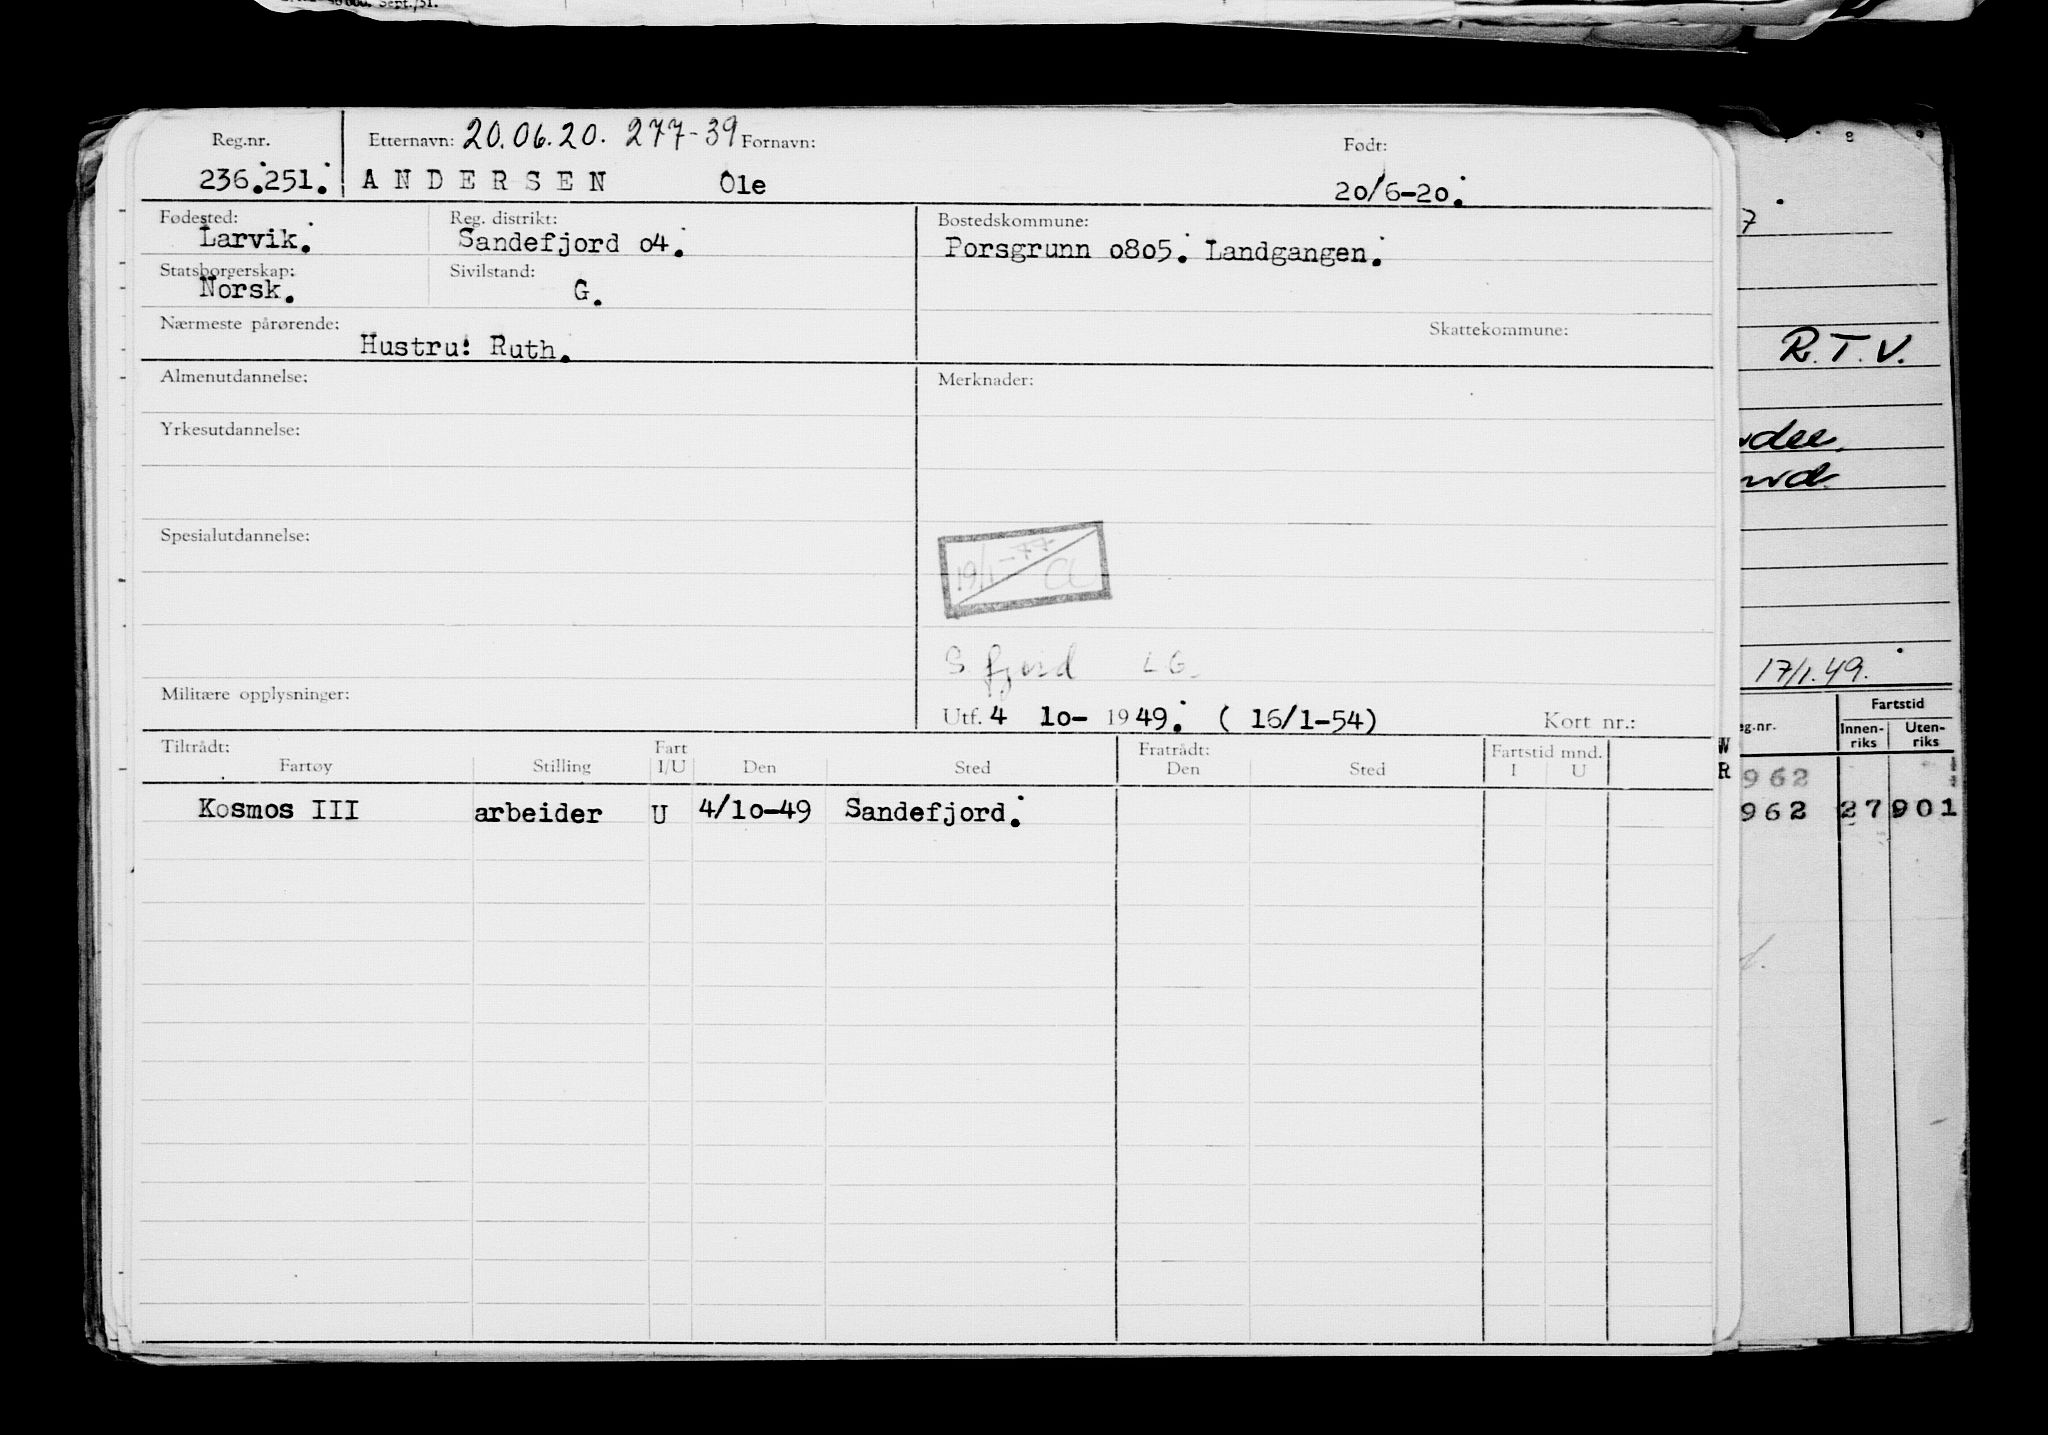 Sept./51.
Reg.nr. Etternavn: 20.06.20. 277-39 Fornavn: Født:
236.251. ANDERSEN Ole 20/6-20.
Fødested: Reg. distrikt: Bostedskommune:
Larvik. Sandefjord o4. Porsgrunn o8o5. Landgangen.
Statsborgerskap: Sivilstand:
Norsk. G.
Nærmeste pårørende: Skattekommune:
Hustru: Ruth.
Almenutdannelse: Merknader:
Yrkesutdannelse:
Spesialutdannelse:
19/1-77 CL
S. fjord L.G.
Militære opplysninger:
Utf. 4 1o- 1949. ( 16/1-54) Kort nr.:
Tiltrådt: Fart Fratrådt: Fartstid mnd.
Fartøy Stilling I/U Den Sted Den Sted I U
Kosmos III arbeider U 4/1o-49 Sandefjord.
8 9
7
R.T.V.
17/1.49.
Fartstid
eg.nr. Innen- Uten-
riks riks
W
R 962
962 27 901